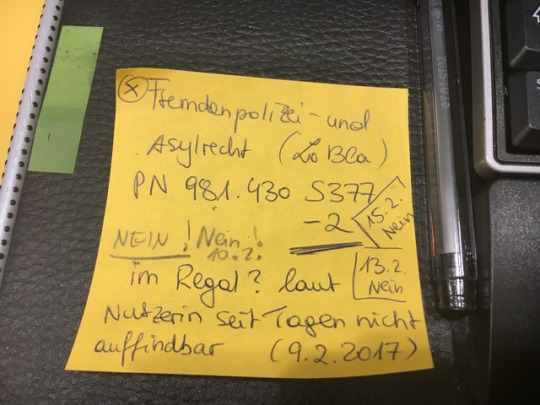 (x) Fremdenpolizei- und
Asylrecht (LoBCa)
PN 981.430 S377
-2
15.2.!
Nein
NEIN! Nein!
10.2.
13.2.
Nein
im Regal? laut
Nutzerin seit Tagen nicht
auffindbar (9.2.2017)